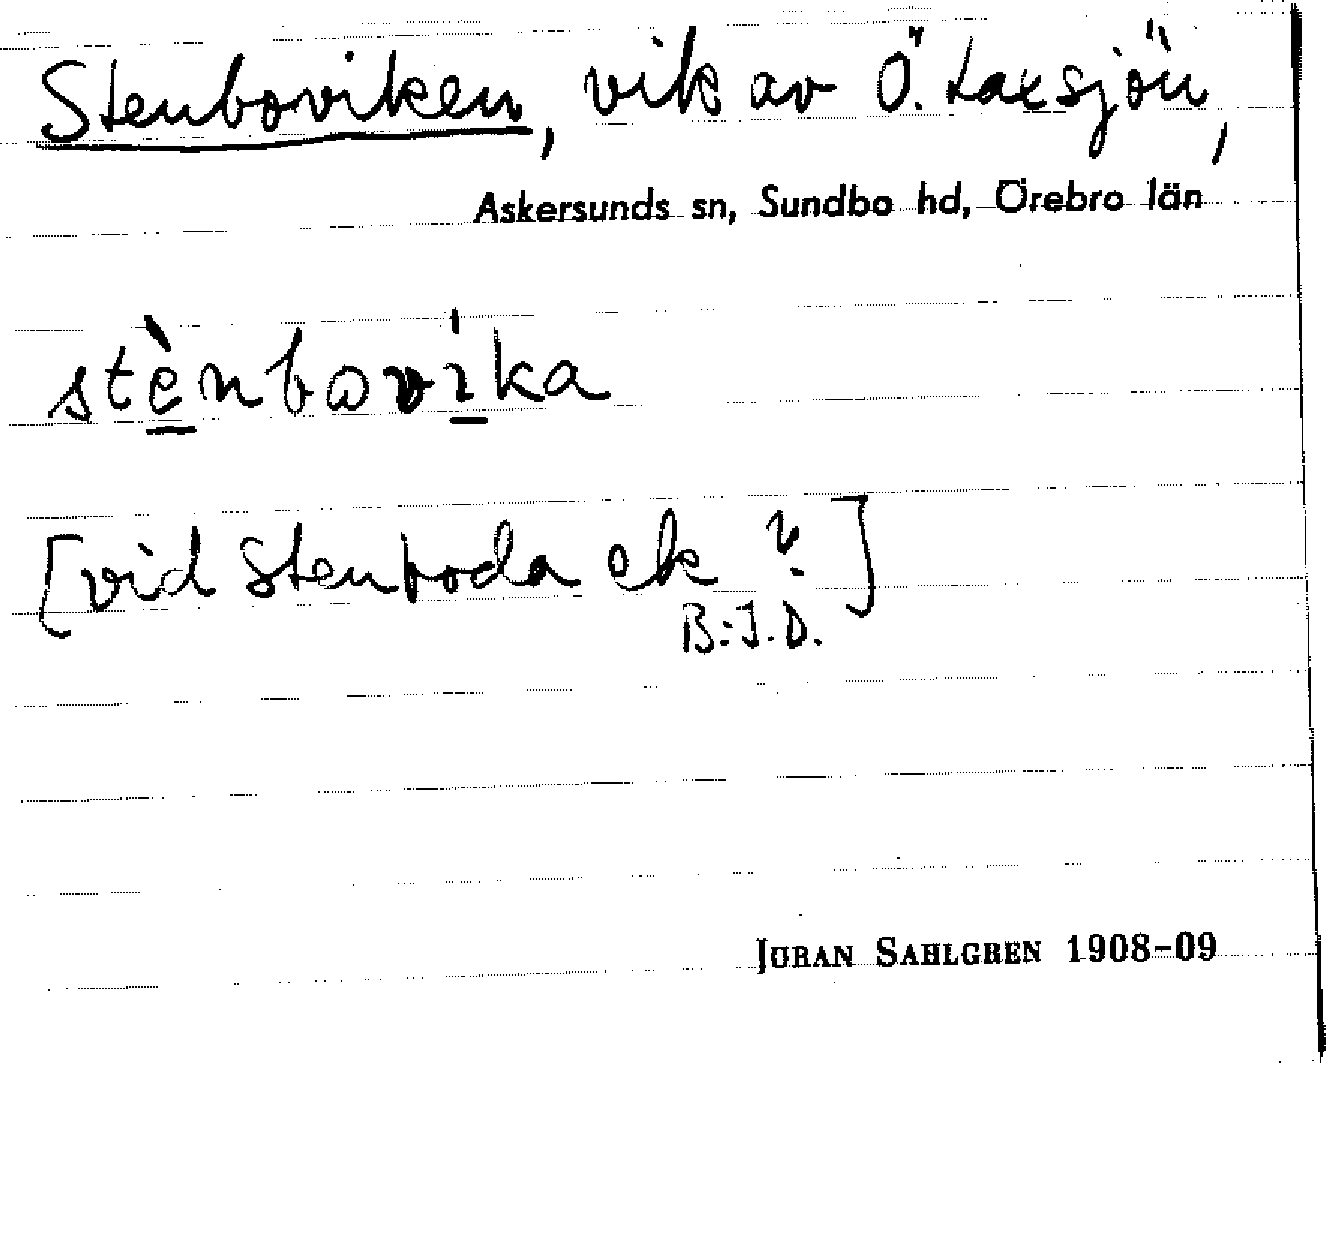 Stenboviken, vik av Ö. Laxsjön,
Askersunds sn, Sundbo hd, Örebro län
stènbovíka
[vid Stenboda ek ?]
B:J.D.
JÖRAN SAHLGREN 1908-09